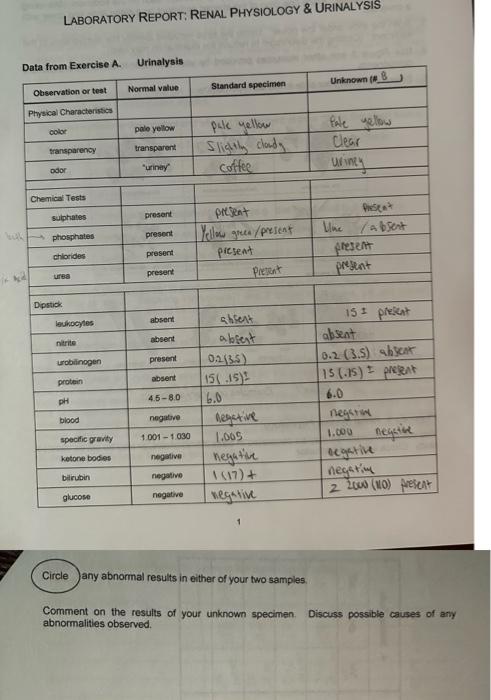 LABORATORY REPORT: RENAL PHYSIOLOGY & URINALYSIS
Data from Exercise A. Urinalysis
Observation or test Normal value Standard specimen Unknown (# 8 )
Physical Characteristics
color pale yellow pale yellow Pale yellow
transparency transparent Slightly cloudy Clear
odor "uriney" coffee uriney
Chemical Tests
sulphates present present Present
phosphates present Yellow green/present blue /absent
chlorides present present present
urea present Present present
Dipstick
leukocytes absent absent 15 ± present
nitrite absent absent absent
urobilinogen present 0.2(3.5) 0.2 (3.5) absent
protein absent 15(.15)± 15 (.15) ± present
pH 4.5-8.0 6.0 6.0
blood negative negative negative
specific gravity 1.001 - 1.030 1.005 1.000 negative
ketone bodies negative negative negative
bilirubin negative 1 (17) + negative
glucose negative negative 2 2000 (110) present
1
Circle any abnormal results in either of your two samples.
Comment on the results of your unknown specimen. Discuss possible causes of any
abnormalities observed.